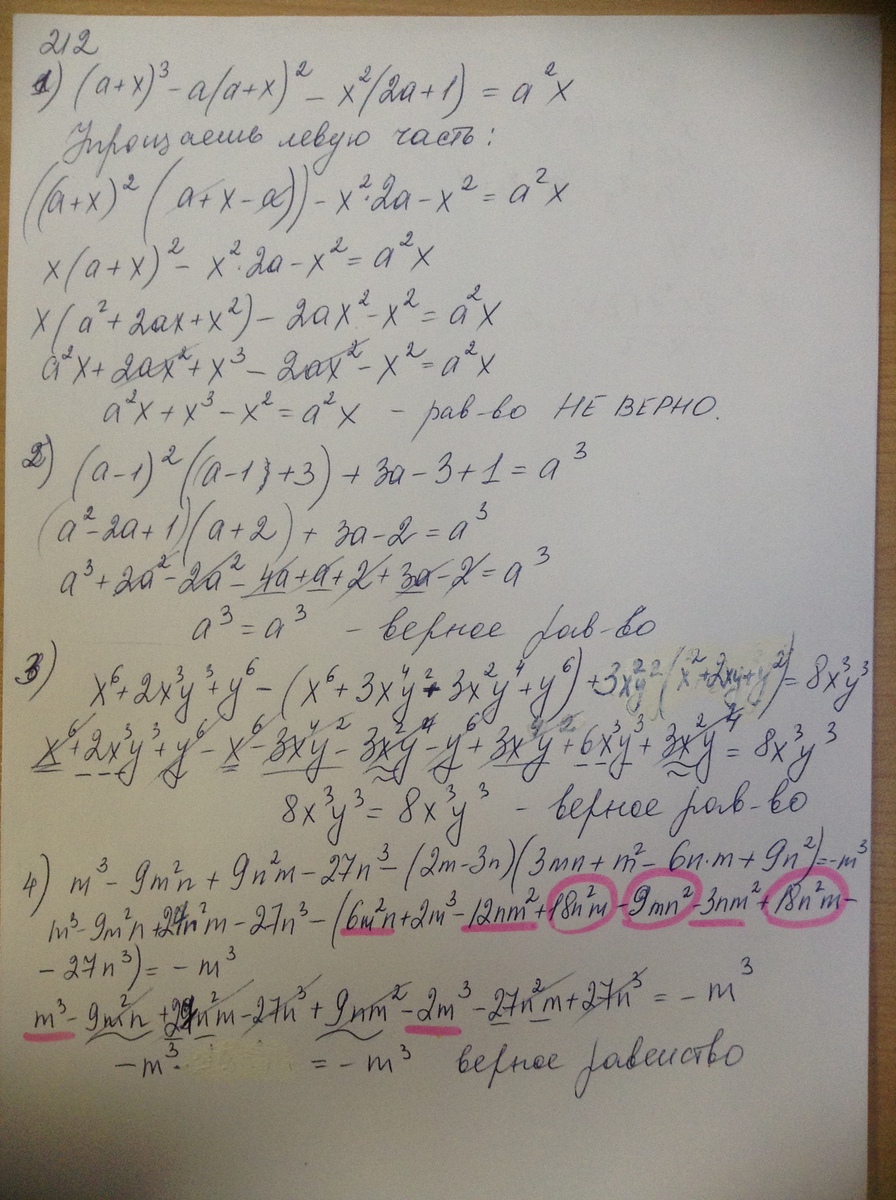 212
1) (a+x)³ - a(a+x)² - x²(2a+1) = a²x
Упрощаешь левую часть:
((a+x)² (a+x-a)) - x²·2a - x² = a²x
x(a+x)² - x²·2a - x² = a²x
x(a²+2ax+x²) - 2ax² - x² = a²x
a²x + 2ax² + x³ - 2ax² - x² = a²x
a²x + x³ - x² = a²x - рав-во НЕ ВЕРНО.
2) (a-1)² ((a-1)+3) + 3a - 3 + 1 = a³
(a²-2a+1)(a+2) + 3a - 2 = a³
a³ + 2a² - 2a² - 4a + a + 2 + 3a - 2 = a³
a³ = a³ - верное рав-во
3) x⁶ + 2x³y³ + y⁶ - (x⁶ + 3x⁴y² + 3x²y⁴ + y⁶) + 3x²y² (x²+2xy+y²) = 8x³y³
x⁶ + 2x³y³ + y⁶ - x⁶ - 3x⁴y² - 3x²y⁴ - y⁶ + 3x⁴y² + 6x³y³ + 3x²y⁴ = 8x³y³
8x³y³ = 8x³y³ - верное рав-во
4) m³ - 9m²n + 9n²m - 27n³ - (2m-3n)(3mn + m² - 6n·m + 9n²) = -m³
m³ - 9m²n + 27n²m - 27n³ - (6m²n + 2m³ - 12nm² + 18n²m - 9mn² - 3nm² + 18n²m -
- 27n³) = - m³
m³ - 9m²n + 27n²m - 27n³ + 9nm² - 2m³ - 27n²m + 27n³ = - m³
- m³ = - m³ верное равенство